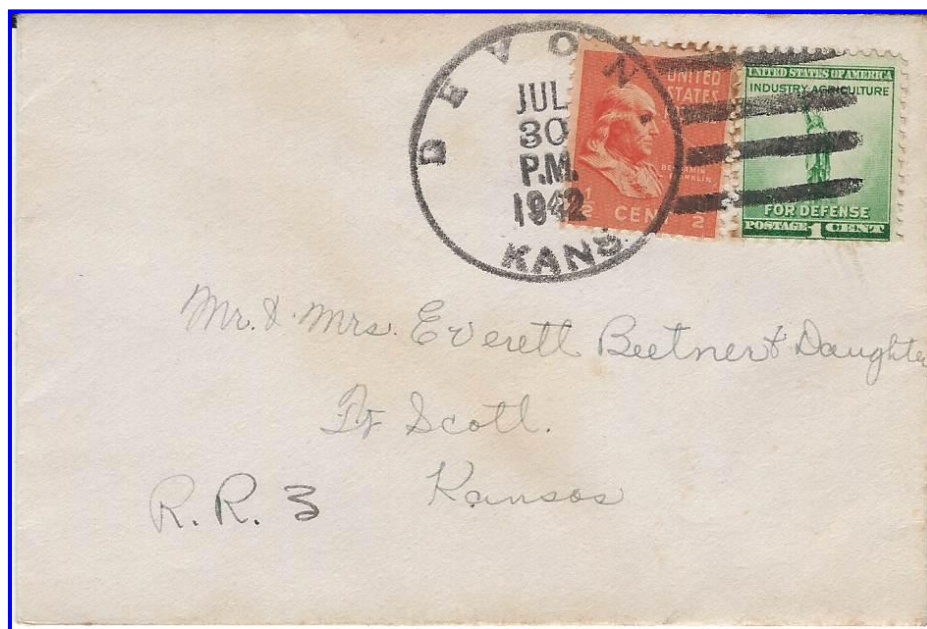 DEVON.
JUL
30
P.M.
1942
KANS.
UNITED
STATES
BENJAMIN
FRANKLIN
1/2 CENT 1/2
UNITED STATES OF AMERICA
INDUSTRY AGRICULTURE
FOR DEFENSE
POSTAGE 1 CENT
Mr. & Mrs. Everett Beetner & Daughter
Ft Scott.
Kansas
R. R. 3